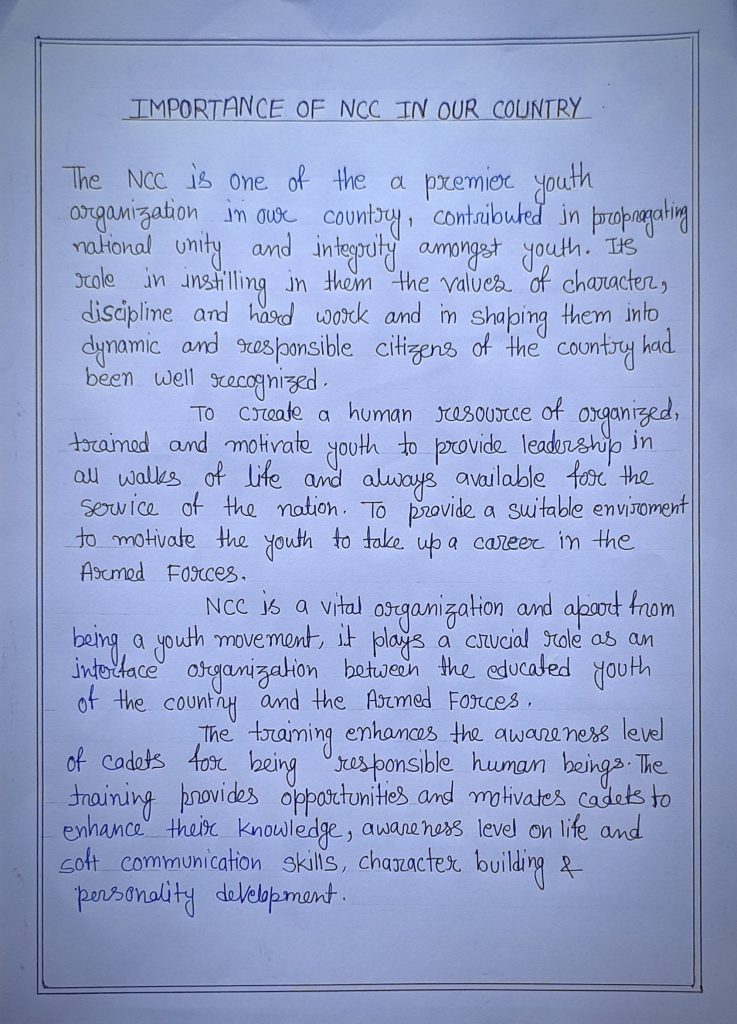 IMPORTANCE OF NCC IN OUR COUNTRY
The NCC is one of the a premier youth
organization in our country, contributed in propragating
national unity and integrity amongst youth. Its
role in instilling in them the values of character,
discipline and hard work and in shaping them into
dynamic and responsible citizens of the country had
been well recognized.
To create a human resource of organized,
trained and motivate youth to provide leadership in
all walks of life and always available for the
service of the nation. To provide a suitable enviroment
to motivate the youth to take up a career in the
Armed Forces.
NCC is a vital organization and apart from
being a youth movement, it plays a crucial role as an
interface organization between the educated youth
of the country and the Armed Forces.
The training enhances the awareness level
of cadets for being responsible human beings. The
training provides opportunities and motivates cadets to
enhance their knowledge, awareness level on life and
soft communication skills, character building &
personality development.